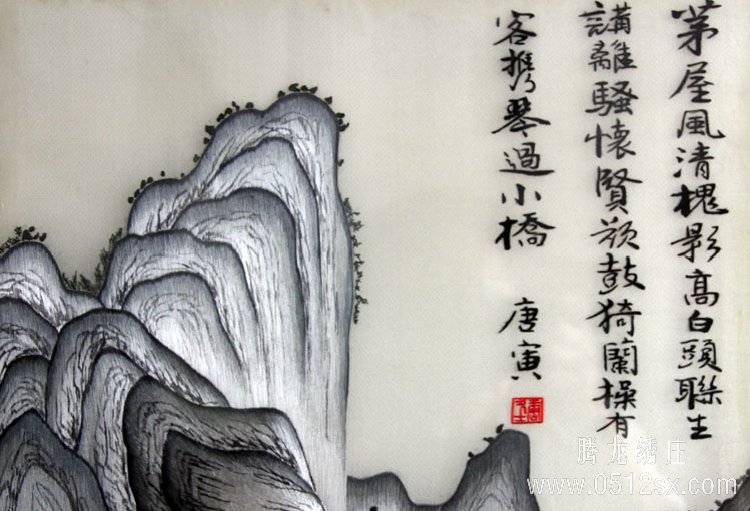 茅屋風清槐影高白頭聯坐
講離騷懷賢欲鼓猗蘭操有
客携琴過小橋
唐寅
腾龙绣庄
www.0512sx.com